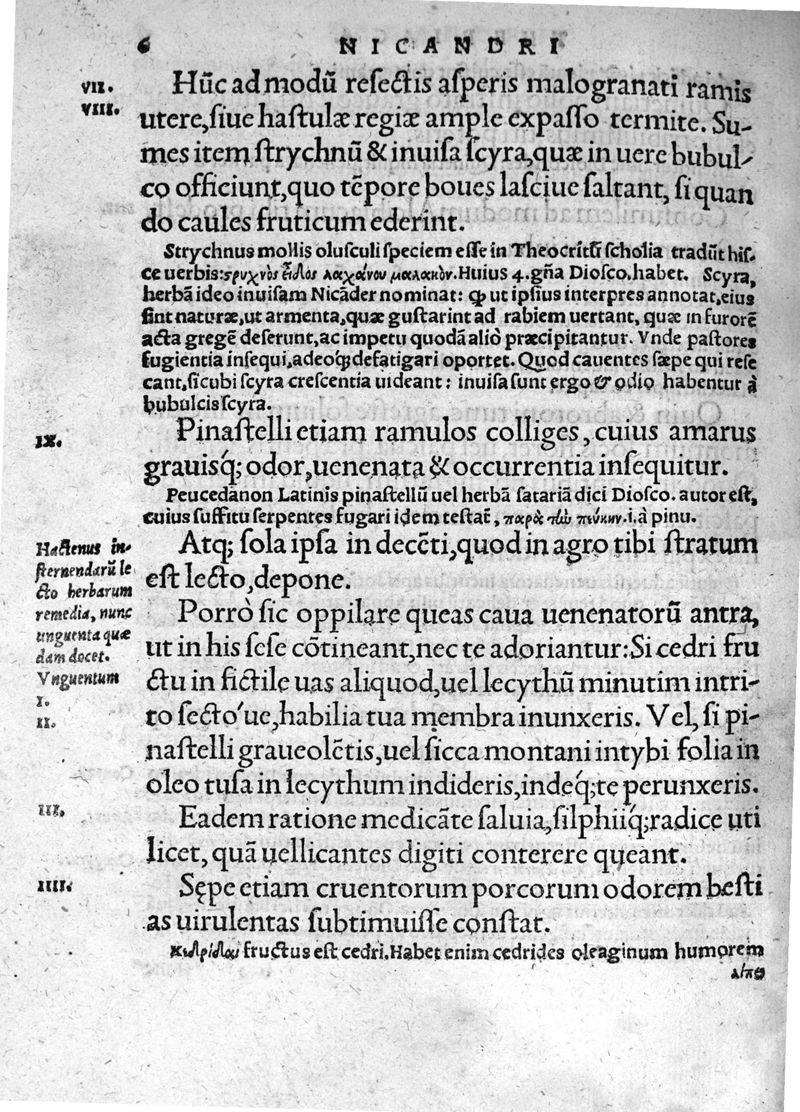 6 NICANDRI
VII. Hūc ad modū resectis asperis malogranati ramis
VIII. utere, siue hastulæ regiæ ample expasso termite. Su-
mes item strychnū & inuisa scyra, quæ in uere bubul-
co officiunt, quo tēpore boues lasciue saltant, si quan
do caules fruticum ederint.
Strychnus mollis olusculi speciem esse in Theocriti scholia tradūt his-
ce uerbis: τρυχνὸς εἶδος λαχάνου μαλακόν. Huius 4. gña Diosco. habet. Scyra,
herbā ideo inuisam Nicāder nominat: ꝙ ut ipsius interpres annotat, eius
sint naturæ, ut armenta, quæ gustarint ad rabiem uertant, quæ in furorē
acta gregē deserunt, ac impetu quodā aliò præcipitantur. Vnde pastores
fugientia insequi, adeoq; defatigari oportet. Quod cauentes sæpe qui rese
cant, sicubi scyra crescentia uideant: inuisa sunt ergo & odio habentur à
bubulcis scyra.
IX. Pinastelli etiam ramulos colliges, cuius amarus
grauisq; odor, uenenata & occurrentia insequitur.
Peucedanon Latinis pinastellū uel herbā satariā dici Diosco. autor est,
cuius suffitu serpentes fugari idem testat̄, παρὰ τὴν πεύκην. i. à pinu.
Atq; sola ipsa in decēti, quod in agro tibi stratum
est lecto, depone.
Porrò sic oppilare queas caua uenenatorū antra,
ut in his sese cōtineant, nec te adoriantur: Si cedri fru
ctu in fictile uas aliquod, uel lecythū minutim intri-
to secto'ue, habilia tua membra inunxeris. Vel, si pi-
nastelli graueolētis, uel sicca montani intybi folia in
oleo tusa in lecythum indideris, indeq; te perunxeris.
Hactenus in-
sternendarū le
cto herbarum
remedia, nunc
unguenta quæ
dam docet.
Vnguentum
I.
II.
III. Eadem ratione medicāte saluia, silphiiq; radice uti
licet, quā uellicantes digiti conterere queant.
IIII. Sępe etiam cruentorum porcorum odorem besti
as uirulentas subtimuisse constat.
κεδρίδας fructus est cedri. Habet enim cedrides oleaginum humorem
ἀπο